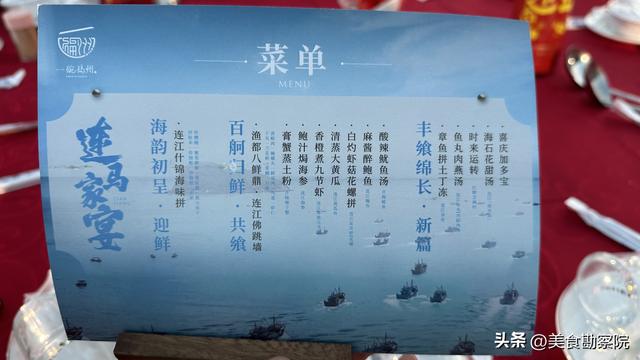 福州
一碗福州
菜单
MENU
连马家宴
海韵初呈·迎鲜
·连江什锦海味拼
百舸归鲜·共飨
·渔都八鲜鼎·连江佛跳墙
·膏蟹蒸土粉
·鲍汁焗海参
·香橙煮九节虾
·清蒸大黄瓜
·白灼虾菇花螺拼
·麻酱醉鲍鱼
·酸辣鱿鱼汤
丰飨绵长·新篇
·章鱼拼土丁冻
·鱼丸肉燕汤
·时来运转
·海石花甜汤
·喜庆加多宝
头条 @美食勘察院